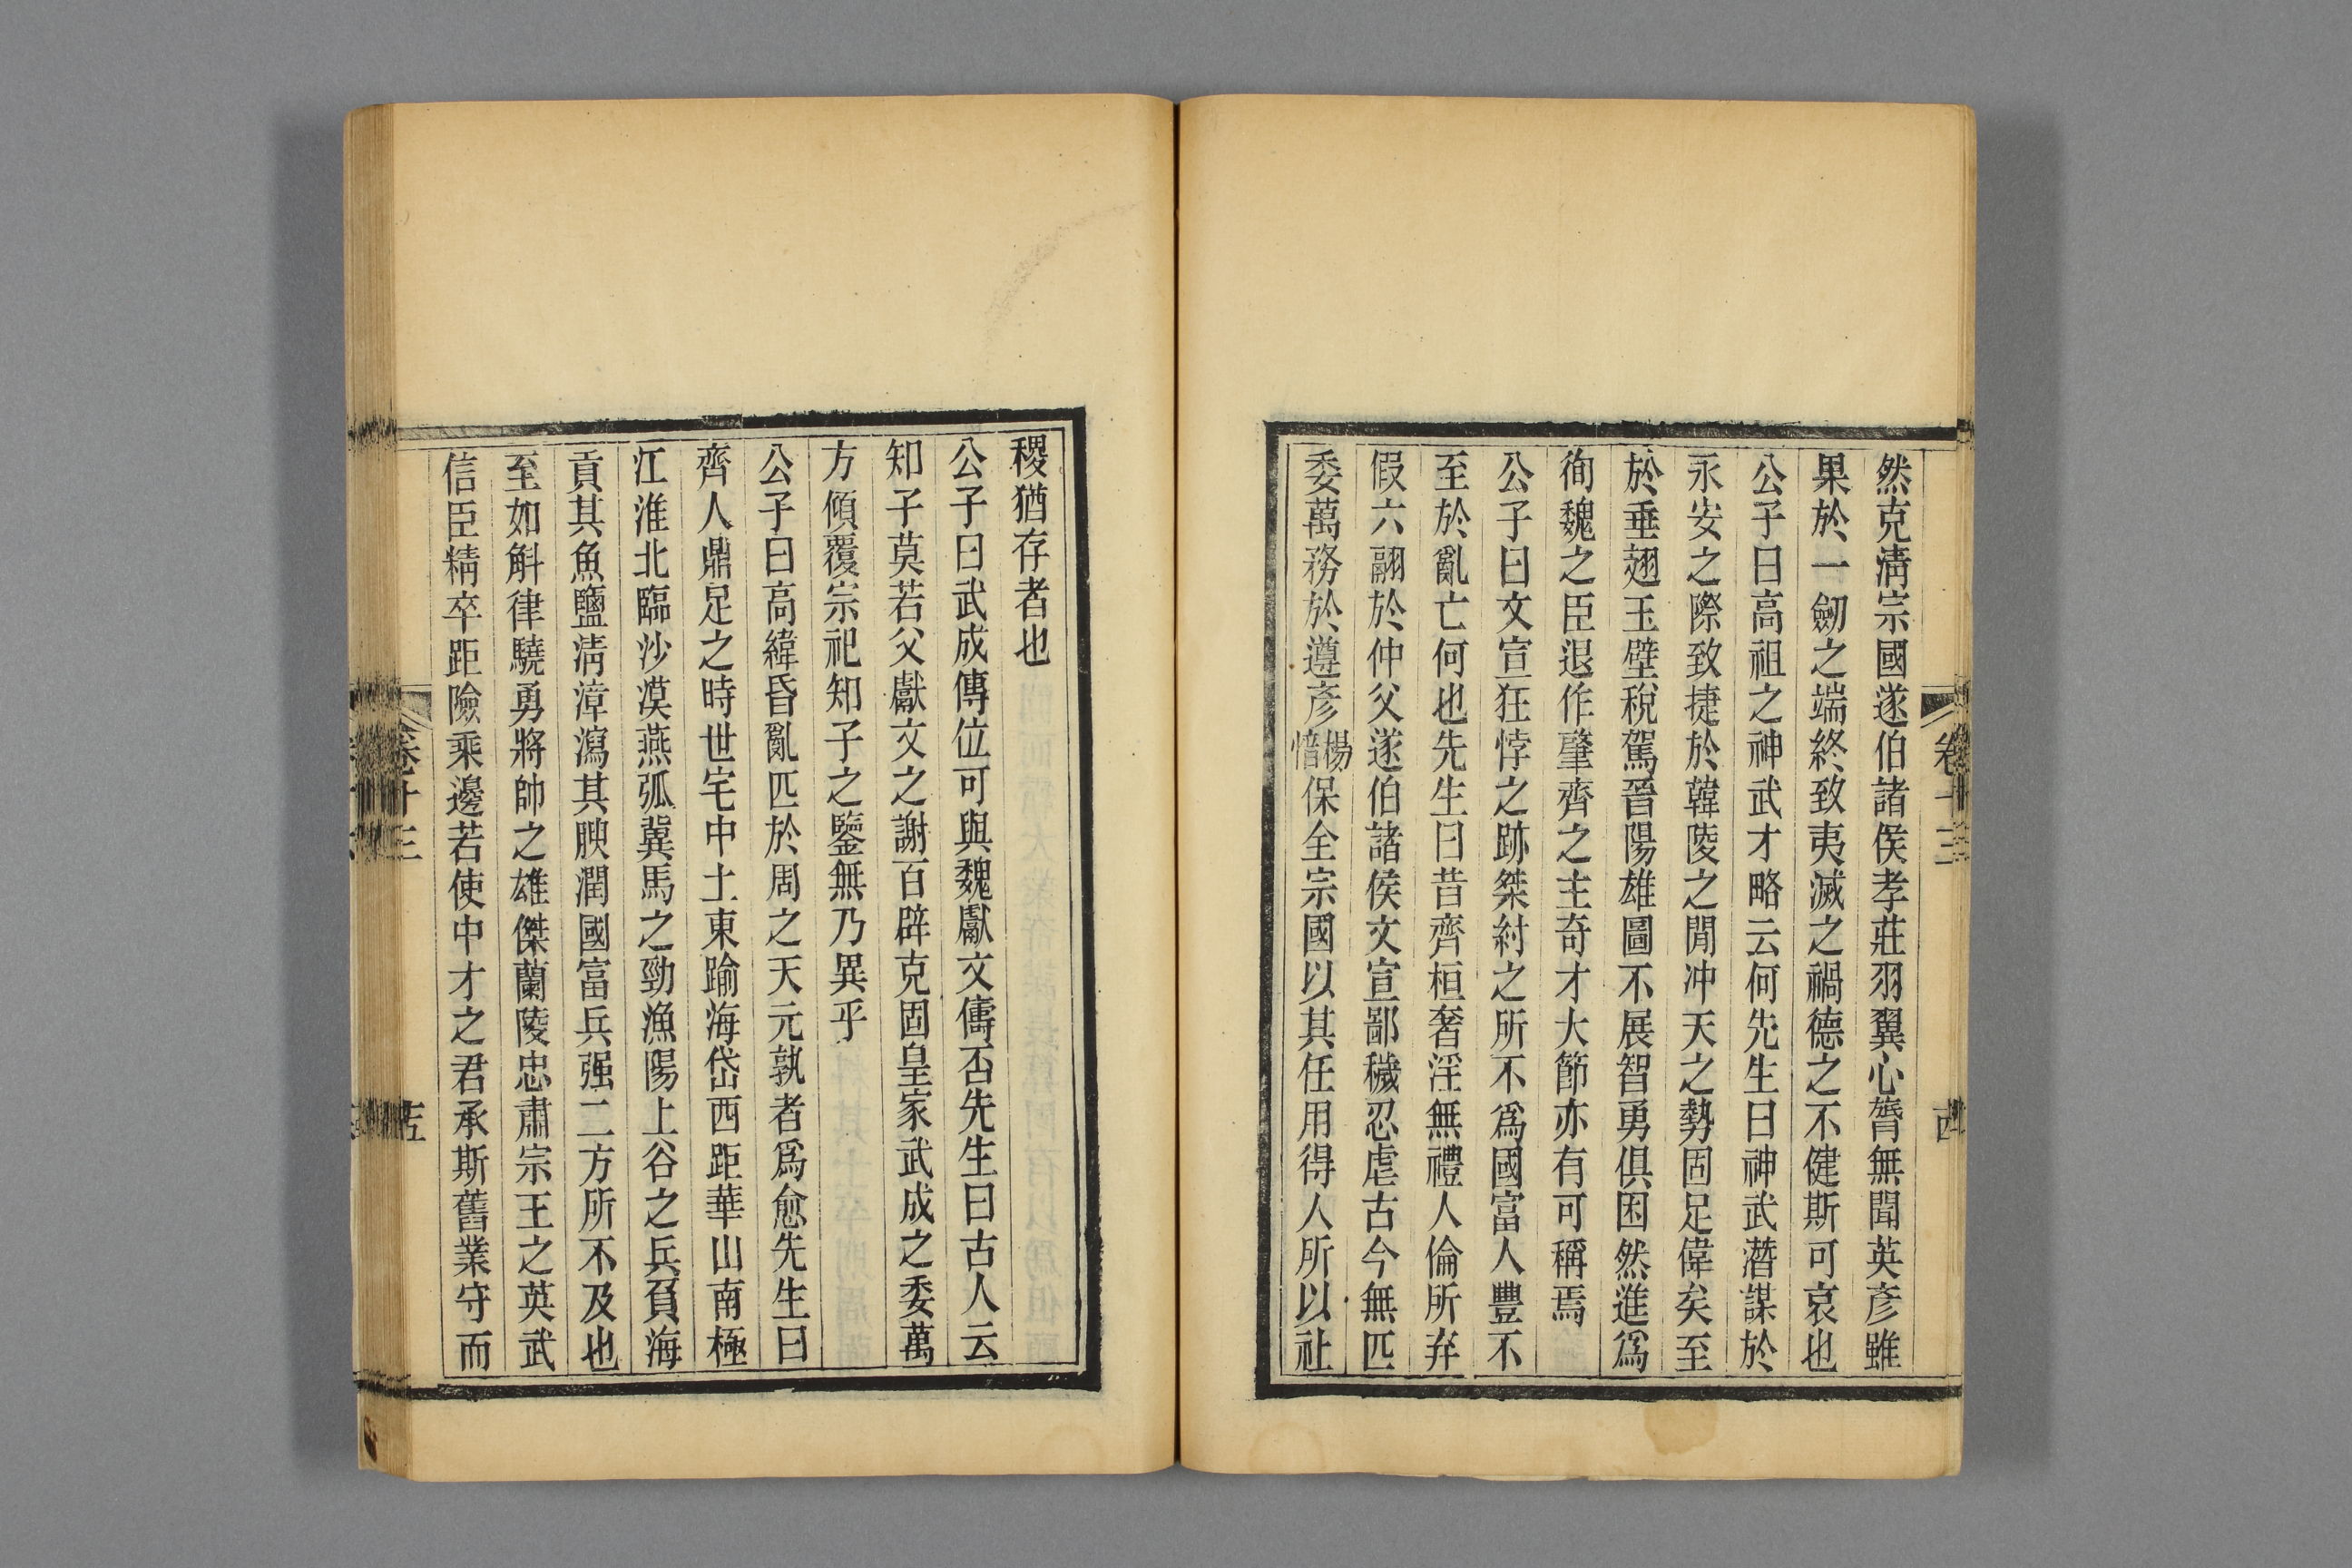 然克淸宗國遂伯諸侯孝莊羽翼心膂無聞英彥雖
果於一劒之端終致夷滅之禍德之不健斯可哀也
公子曰高祖之神武才略云何先生曰神武潛謀於
永安之際致捷於韓陵之閒冲天之勢固足偉矣至
於垂翅玉壁稅駕晉陽雄圖不展智勇俱困然進爲
徇魏之臣退作肇齊之主奇才大節亦有可稱焉
公子曰文宣狂悖之跡桀紂之所不爲國富人豐不
至於亂亡何也先生曰昔齊桓奢淫無禮人倫所弃
假六翮於仲父遂伯諸侯文宣鄙穢忍虐古今無匹
委萬務於遵彥楊愔保全宗國以其任用得人所以社
卷十三
稷猶存者也
公子曰武成傳位可與魏獻文儔否先生曰古人云
知子莫若父獻文之謝百辟克固皇家武成之委萬
方傾覆宗祀知子之鑒無乃異乎
公子曰高緯昏亂匹於周之天元孰者爲愈先生曰
齊人鼎足之時世宅中土東踰海岱西距華山南極
江淮北臨沙漠燕弧冀馬之勁漁陽上谷之兵負海
貢其魚鹽淸漳瀉其腴潤國富兵强二方所不及也
至如斛律驍勇將帥之雄傑蘭陵忠肅宗王之英武
信臣精卒距險乘邊若使中才之君承斯舊業守而
卷十三